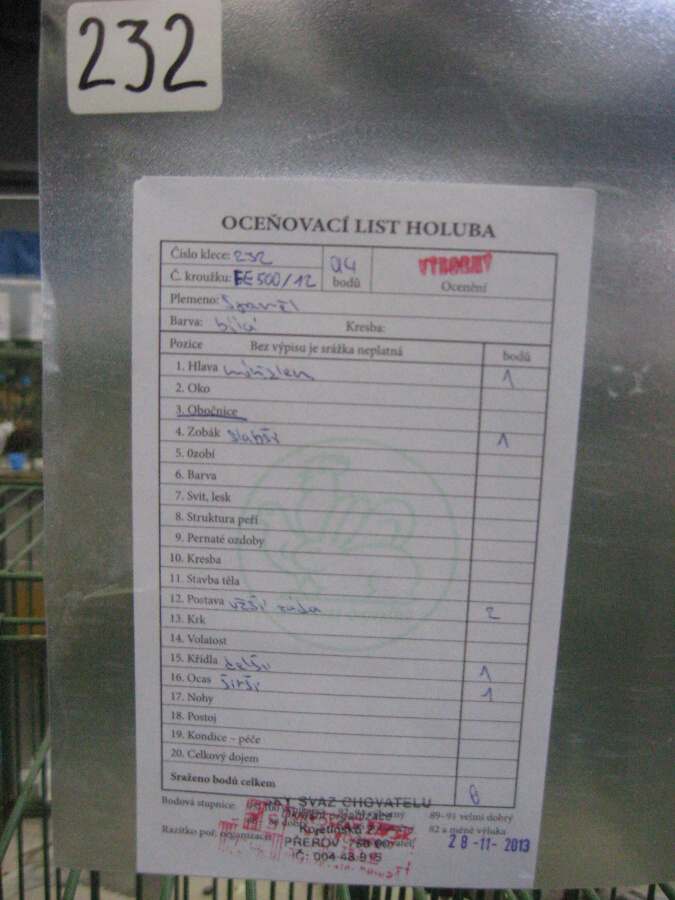 232
OCEŇOVACÍ LIST HOLUBA
Číslo klece: 232
94
VÝBORNÝ
Č. kroužku: EE 500/12
bodů
Ocenění
Plemeno:
Barva: bílá
Kresba:
Pozice
Bez výpisu je srážka neplatná
bodů
1. Hlava
1
2. Oko
3. Obočnice
4. Zobák slabší
1
5. Ozobí
6. Barva
7. Svit, lesk
8. Struktura peří
9. Pernaté ozdoby
10. Kresba
11. Stavba těla
12. Postava užší záda
2
13. Krk
14. Volatost
15. Křídla delší
1
16. Ocas širší
1
17. Nohy
18. Postoj
19. Kondice – péče
20. Celkový dojem
Sraženo bodů celkem
6
Bodová stupnice:
SVAZ CHOVATELŮ
89–91 velmi dobrý
82 a méně výluka
Razítko poř. organizace
PŘEROV 750 00
28 -11- 2013